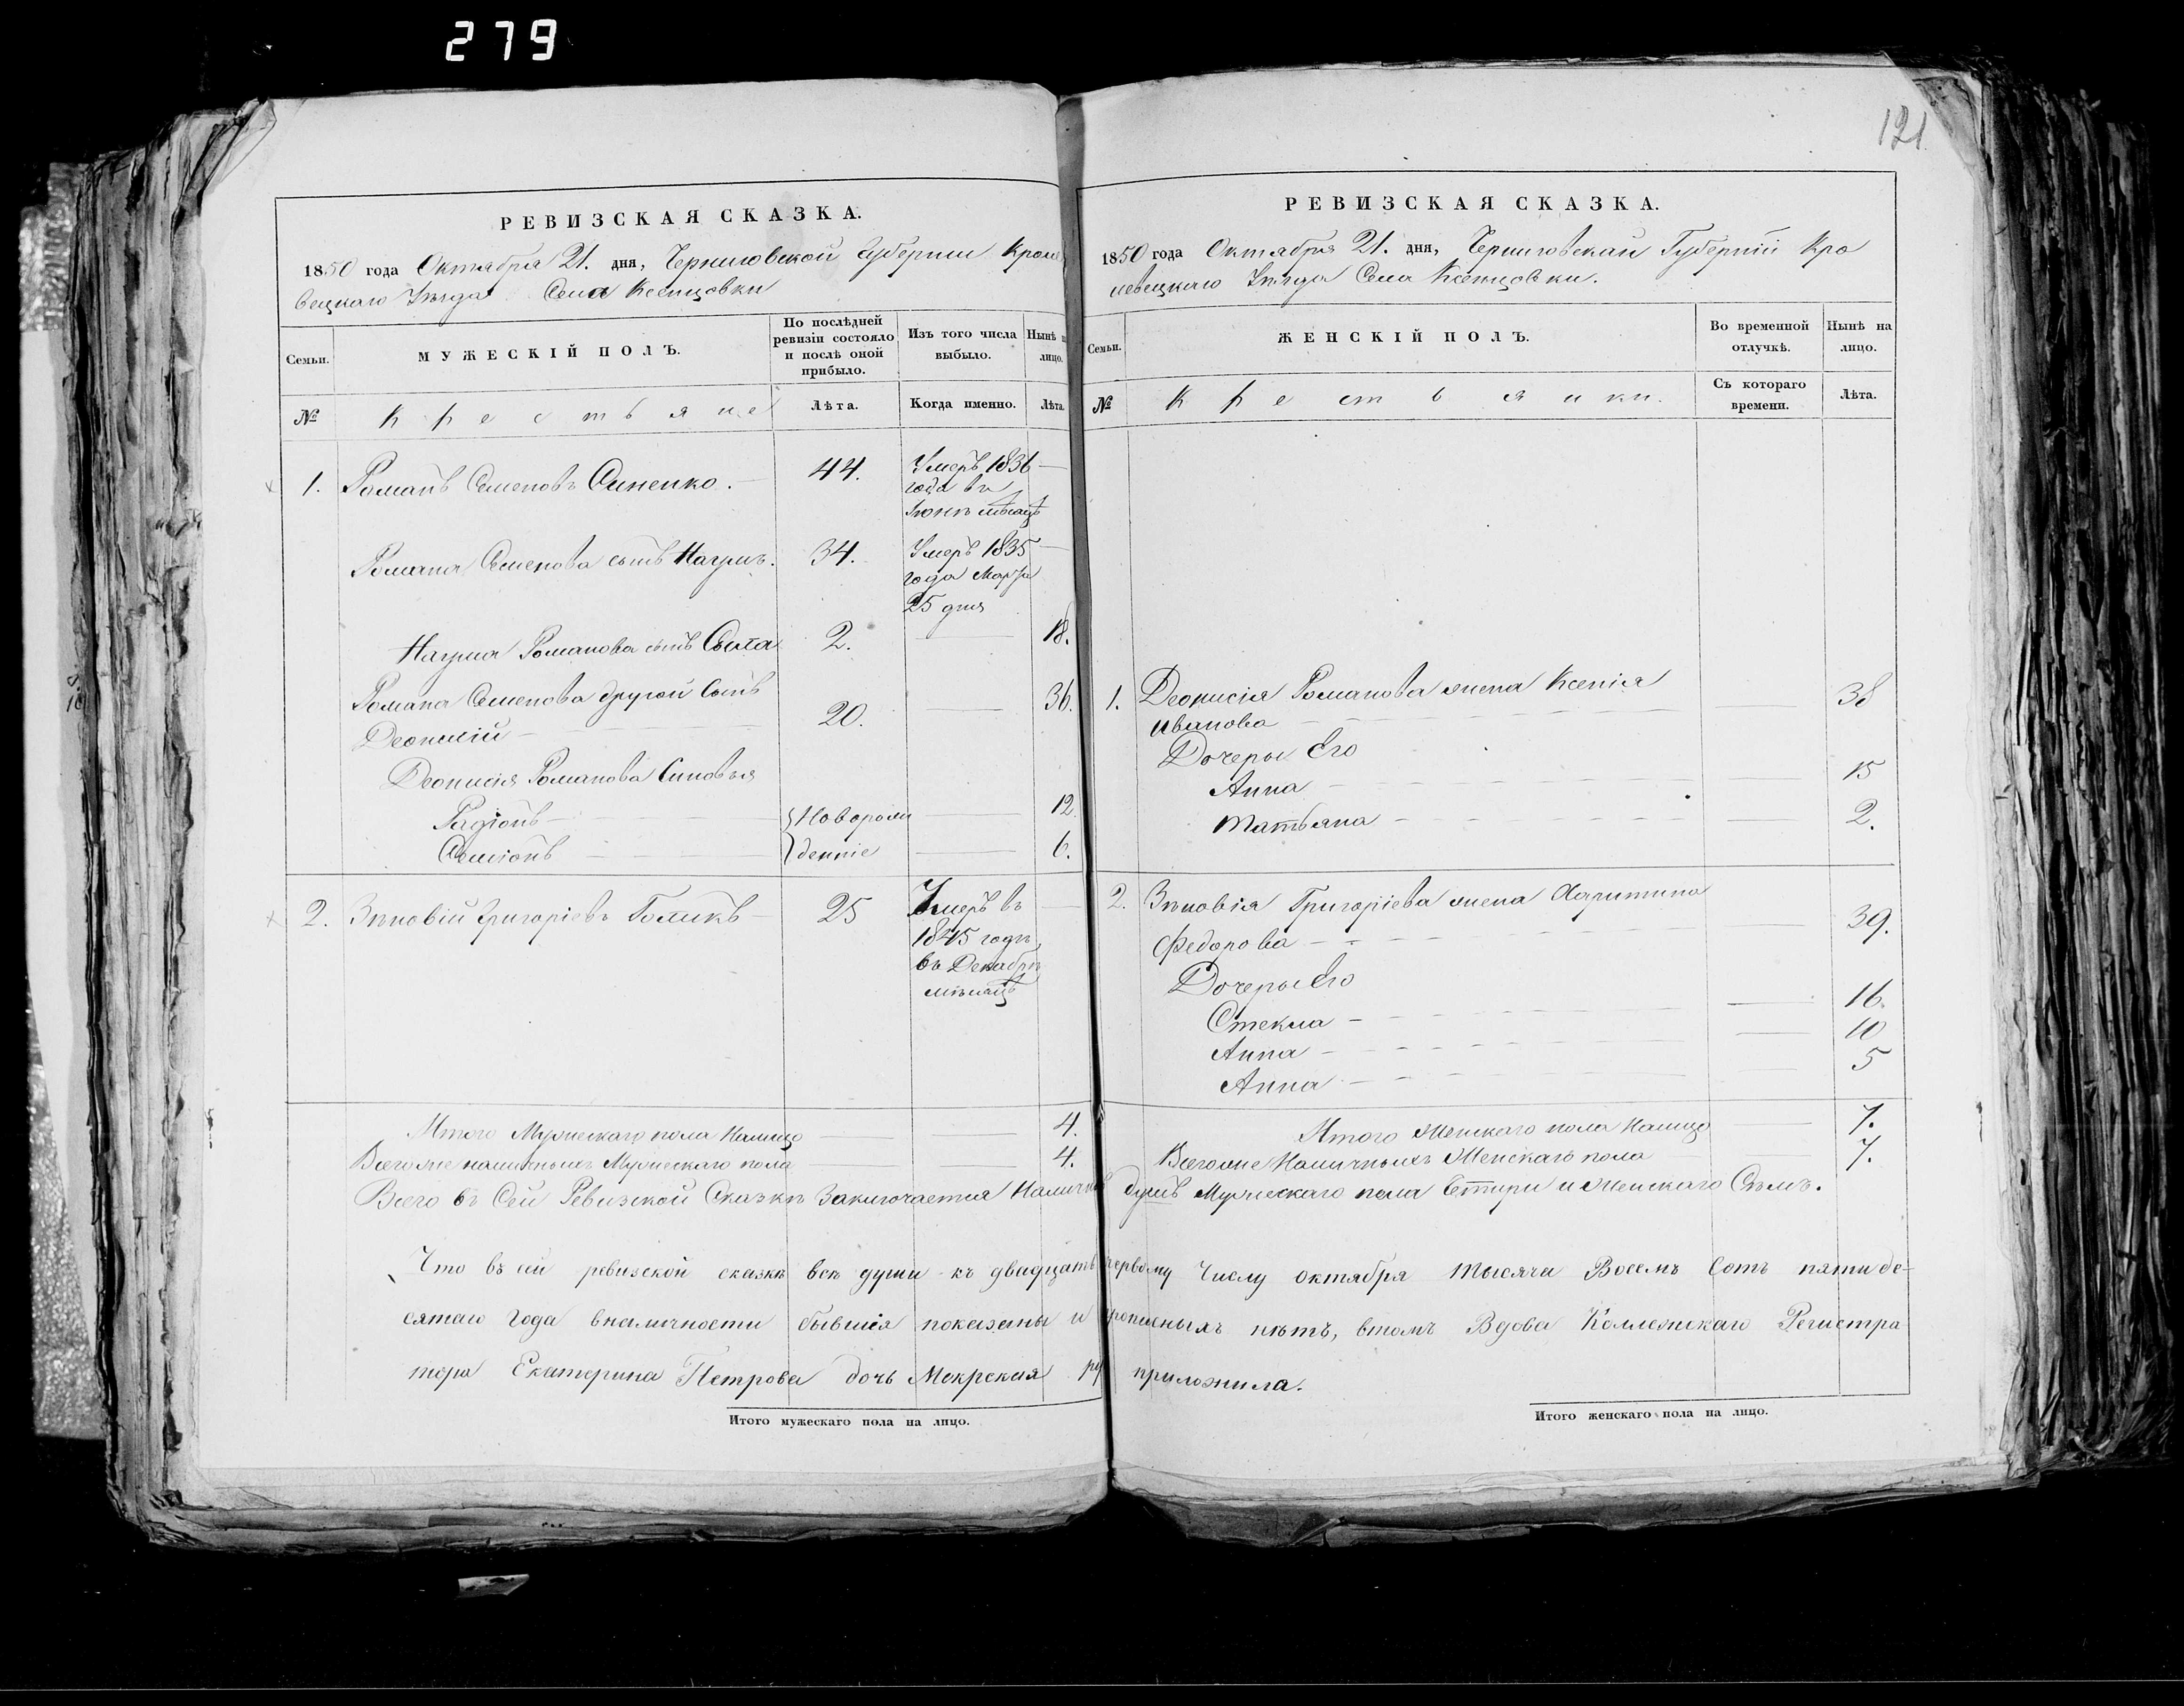 279
121
РЕВИЗСКАЯ СКАЗКА.
1850 года Октября 21. дня, Черниговской Губернии Кроле
вецкаго Уѣзда Села Ксенцовки
Семьи.
МУЖЕСКІЙ ПОЛЪ.
По послѣдней ревизіи состояло и послѣ оной прибыло.
Изъ того числа выбыло.
Нынѣ
лицо.
№
Крестьяне
Лѣта.
Когда именно.
Лѣта.
1. Романъ Семеновъ Синенко. 44. Умеръ 1836
года въ
Іюнѣ мѣсяцѣ
Романа Семенова сынъ Наумъ. 34. Умеръ 1835
года Марта
25 дня
Наума Романова сынъ Савва 2. 18.
Романа Семенова другой Сынъ
Деонисій 20. 36.
Деонисія Романова Синовья
Радіонъ Новорож 12
Семіонъ деннie 6.
2. Зѣновій Григоріевъ Голикъ 25 Умеръ въ
1845 годѣ
въ Декабрѣ
мѣсяцѣ
Итого Мужескаго пола Налицо 4.
Всегоже наличныхъ Мужескаго пола 4.
РЕВИЗСКАЯ СКАЗКА.
1850 года Октября 21. дня, Черниговской Губерніи Кро
левецкаго Уѣзда Села Ксенцовки.
Семьи.
ЖЕНСКІЙ ПОЛЪ.
Во временной отлучкѣ.
Нынѣ на лицо.
№
Крестьянки.
Съ котораго времени.
Лѣта.
1. Деонисія Романова жена Ксенія
Иванова 38
Дочеры Его
Анна 15
Татьяна 2.
2. Зѣновія Григоріева жена Харитина
Федорова 39.
Дочеры Его
Стекла 16.
Анна 10
Анна 5
Итого Женскаго пола Налицо 7.
Всегоже Наличныхъ Женскаго пола 7.
Всего въ Сей Ревизской Сказкѣ Заключается Наличн душъ Мужескаго пола Четири и Женскаго Сѣмъ.
Что въ сей ревизской сказкѣ всѣ души къ двадцать первому Числу октября тысяча Восемъ Сотъ пятиде-
сятаго года вналичности бывшія показаны и прописныхъ нѣтъ, втомъ Вдова Коллежскаго Регистра
тора Екатерина Петрова дочь Мокрская ру приложила.
Итого мужескаго пола на лицо.
Итого женскаго пола на лицо.